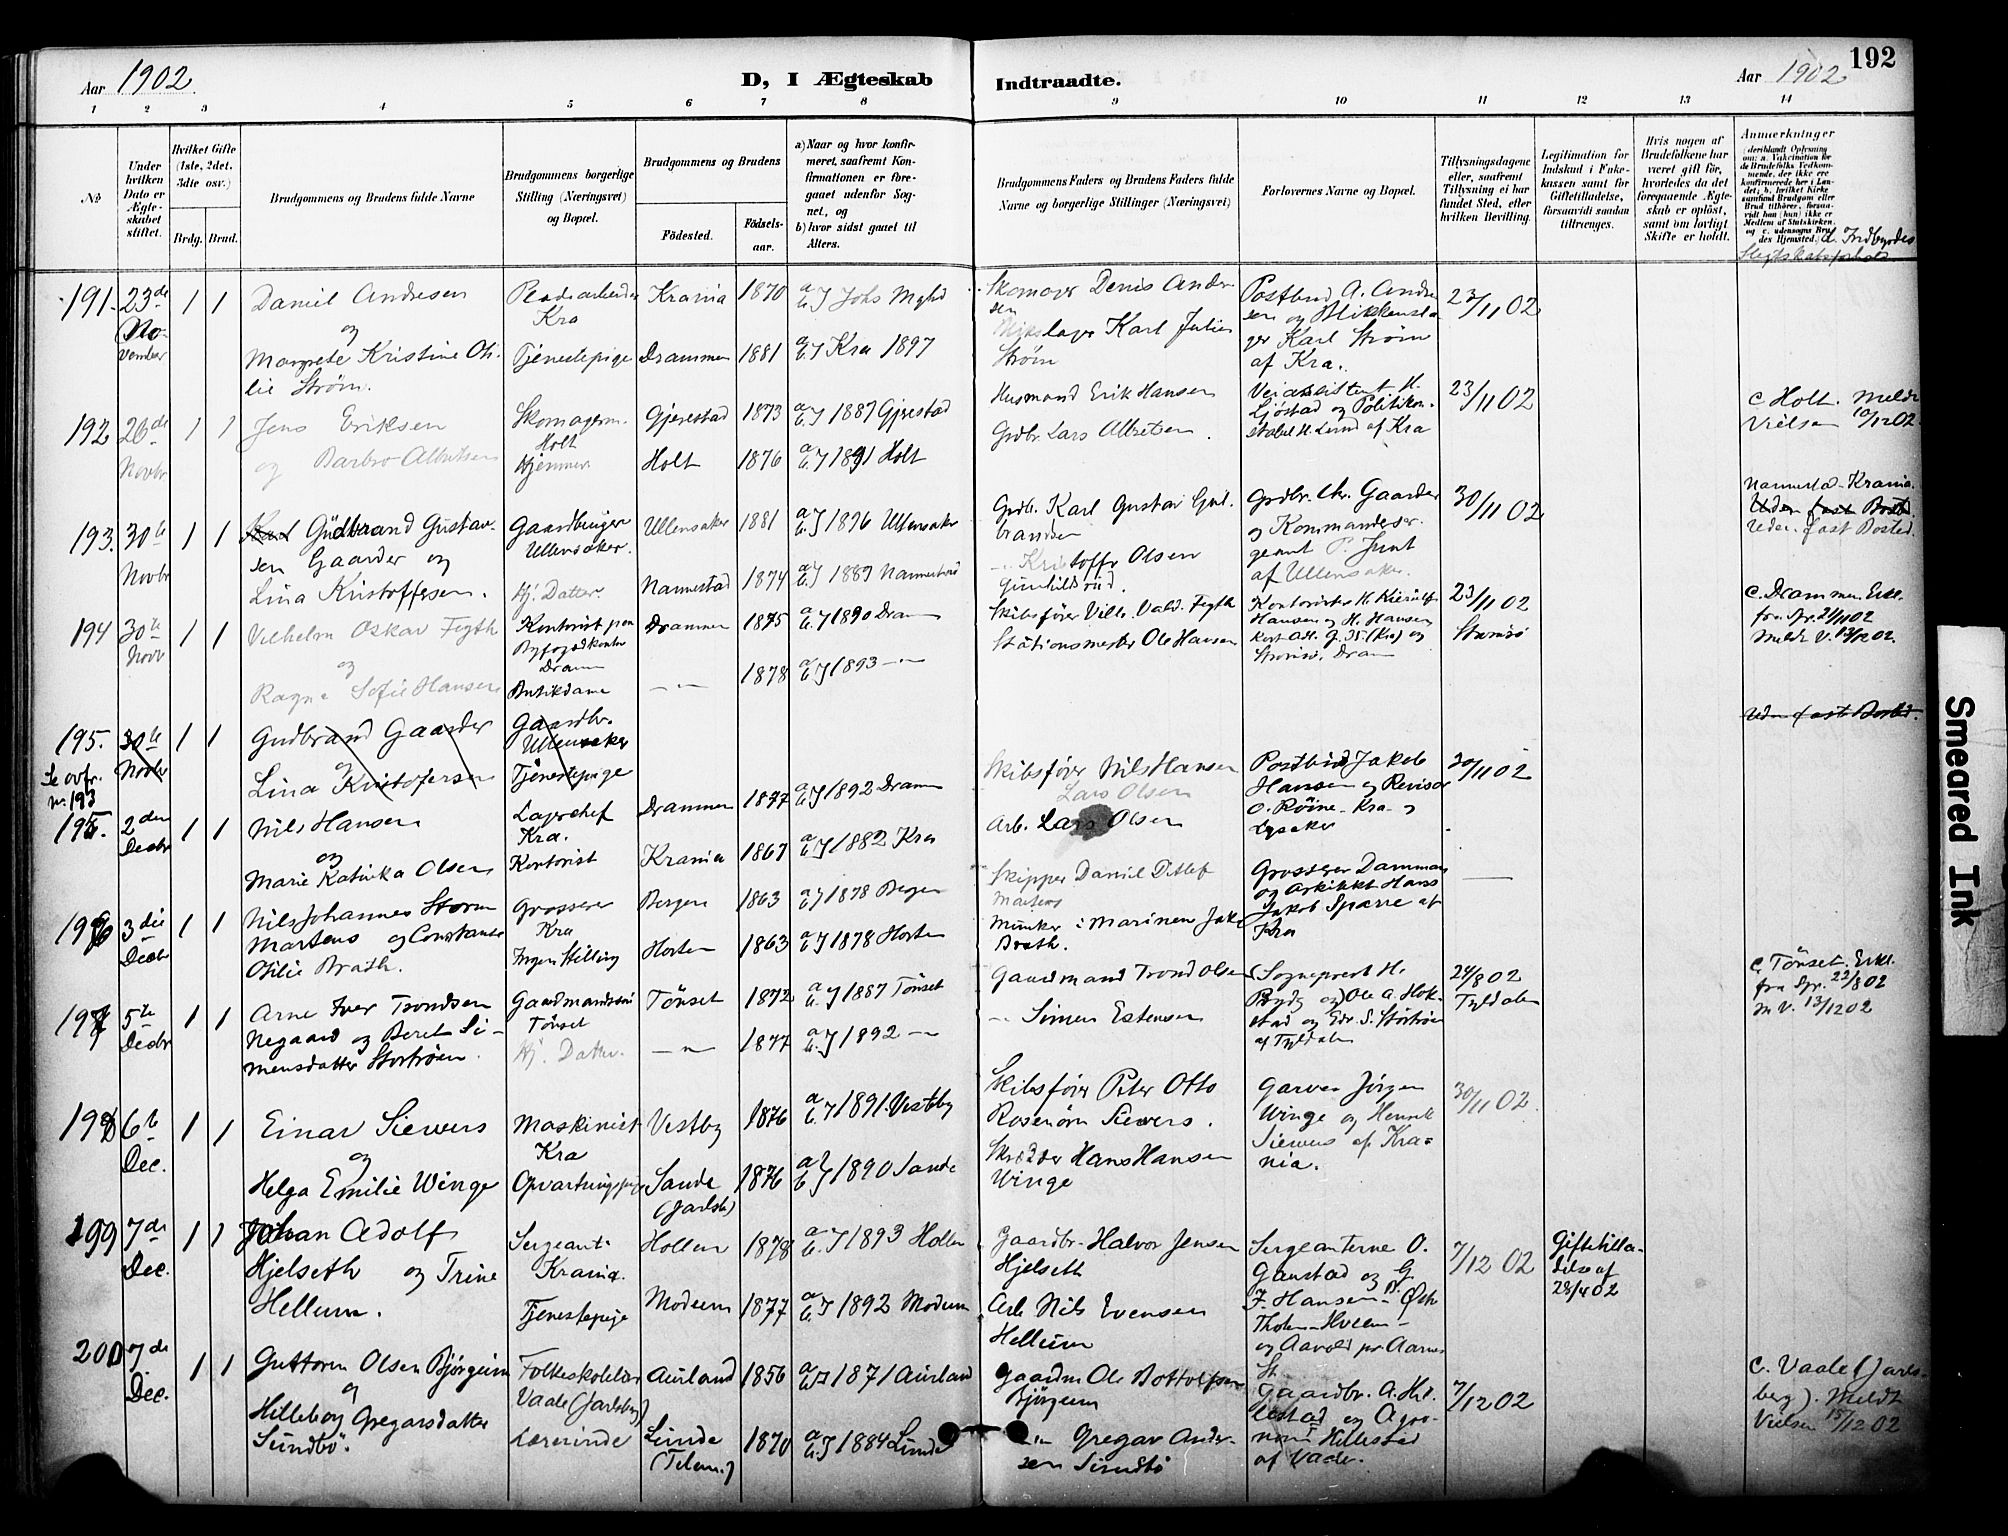 192
Aar 1902. D, I Ægteskab Indtraadte. Aar 1902
1 2 3 4 5 6 7 8 9 10 11 12 13 14
№
Under hvilken Dato er Ægteskabet stiftet.
Hvilket Gifte (1ste, 2det, 3die osv.)
Brdg. Brud.
Brudgommens og Brudens fulde Navne
Brudgommens borgerlige Stilling (Næringsvei) og Bopæl.
Brudgommens og Brudens
Fødested. Fødselsaar.
a) Naar og hvor konfirmeret, saafremt Konfirmationen er foregaaet udenfor Sognet, og
b) hvor sidst gaaet til Alters.
Brudgommens Faders og Brudens Faders fulde Navne og borgerlige Stillinger (Næringsvei)
Forlovernes Navne og Bopæl.
Tillysningsdagene eller, saafremt Tillysning ei har fundet Sted, efter hvilken Bevilling.
Legitimation for Indskud i Enkekassen samt for Giftetilladelse, forsaavidt saadan tiltrænges.
Hvis nogen af Brudefolkene har været gift før, hvorledes da det foregaaende Ægteskab er opløst, samt om lovligt Skifte er holdt.
Anmærkninger
(deriblandt Oplysning om: a. Vakcination for de Brudefolks Vedkommende, der ikke ere konfirmerede her i Landet; b. hvilket Kirkesamfund Brudgom eller Brud tilhører, forsaavidt han (hun) ikke er Medlem af Statskirken, og c. udensogns Brudes Hjemsted.) d. Indbyrdes
Slegtskabsforhold.
191. 23de November 1 1
Daniel Andresen
og
Margrete Kristine Otilie Strøm.
Kra
Tjenestepige
Krania 1870
Drammen 1881
a b } Johs Mghd
a b } Kra 1897
Skomager Denis Andresen
Karl Julius Strøm
Postbud A. Andresen og Blikkenslager Karl Strøm af Kra.
23/11 02
192 26de Novbr 1 1
Jens Eriksen
og Barbro Albretsen
Skomagerm. Holt
Hjemmev.
Gjerestad 1873
Holt 1876
a b } 1887 Gjerestad
a b } 1891 Holt
Husmand Erik Hansen
Grdbr. Lars Albretsen.
Veiassistent H. Ljøstad og Politikonstabel H. Lund af Kra
23/11 02
c Holt. Meldt
Vielsen 10/12 02
193. 30te Novbr 1 1
Karl Gudbrand Gustavsen Gaarder og
Lina Kristoffersen.
Gaardbruger
Ullensaker.
Hj. Datter
Ullensaker 1881
Nannestad 1874
a b } 1896 Ullensaker
a b } 1889 Nannestad
Grdb. Karl Gustav Gulbrandsen
-- Kristoffer Olsen
Gunhildsrud.
Grdbr. Chr. Gaarder og Kommandersergeant P. Juul af Ullensaker.
30/11 02
Nannestad - Krania.
Uden fast Bosted.
Uden fast Bosted.
194 30te Novb 1 1
Vilhelm Oskar Fegth
og
Ragna Sofie Hansen
Kontorist paa Byfogdkontor
Dramm
Butikdame
Drammen 1875
-- " -- 1878
a b } 1890 Dramm
a b } 1893 -- " --
Skibsfører Vilh. Vald. Fegth
Stationsmester Ole Hansen
Kontorister H. Kierulf Hansen og H. Hansen
Strømsø. Dram
23/11 02
Strømsø
c. Drammen. Erkl.
fra Spr. 24/11 02
Meldt V. 13/12 02
195. 30te Novbr 1 1
Se ovfr.
nr. 193
Gudbrand Gaarder
og
Lina Kristofersen
Gaardbr.
Ullensaker
Tjenestepige
Uden fast Bosted.
195. 2den Decbr 1 1
Nils Hansen
og
Marie Katinka Olsen
Lagerchef
Kra.
Kontorist
Drammen 1877
Krania 1867
a b } 1892 Dramm
a b } 1882 Kra
Skibsfører Nils Hansen
Lars Olsen
Arb. Lars Olsen
Postbud Jakob Hansen og Revisor O. Röine - Kra - og Lysaker
30/11 02
196 3die Decbr 1 1
Nils Johannes Storm
Martens og Constanse
Otilie Brath.
Grosserer
Kra
Ingen Stilling
Bergen 1863
Horten 1863
a b } 1878 Bergen
a b } 1878 Horten
Skipper Daniel Ditlef
Martens
Minker i Marinen Jak
Brath.
Grosserer Dammann og Arkitekt Hans Jakob Sparre af Kra
197 5te Decbr 1 1
Arne Iver Trondsen
Negaard og Beret Simensdatter Storrøen.
Gaardmandssøn
Tönset
Hj. Datter.
Tönset 1872
-- " -- 1877
a b } 1887 Tönset
a b } 1892 -- " --
Gaardmand Trond Olsen
-- Simen Estensen
Sognepræst H. Bryde og Ole A. Hokstad og Edv. S. Storrøen af Tyldalen
24/8 02
Tyldalen
c. Tönset. Erkl.
fra Spr. 22/8 02
M V. 13/12 02
198 6te Dec. 1 1
Einar Siewers
og
Helga Emilie Winge
Maskinist
Kra
Opvartningspige
Vestby 1876
Sande (Jarlsb.) 1876
a b } 1891. Vestby
a b } 1890 Sande
Skibsfører Peter Otto
Rosenørn Siewers.
Skrædder Hans Hansen
Winge
Garver Jørgen Winge og Henrik Siewers af Krania.
30/11 02
199 7de Dec. 1 1
Johan Adolf
Hjelseth og Trine
Hellum.
Sergeant.
Krania.
Tjenestepige
Hollen 1878
Modum 1877
a b } 1893 Hollen
a b } 1892 Modum
Gaardbr. Halvor Jensen
Hjelseth
Arb. Nils Evensen
Hellum
Sergeanterne O. Ganstad og G. B. F. Hansen - Øst Thoten - Hveem - og Aavold pr Aarnes St.
7/12 02
Giftetilladelse af
28/4 02
200 7de Dec. 1 1
Guttorm Olsen Bjørgum
og
Hilleborg Gregarsdatter
Sundbö.
Folkeskolelær
Vaale (Jarlsberg)
Lærerinde
Aurland 1856
Lunde (Telem.) 1870
a b } 1871 Aurland
a b } 1884 Lunde
Gaardm Ole Bottolfsen
Bjørgum
-- " -- Gregar Andersen Sundbö
Gaardbr. A. Hillestad og Agronom Hillestad af Vaale.
7/12 02
c. Vaale (Jarlsberg). Meldt
Vielsen 15/12 02
Smeared Ink